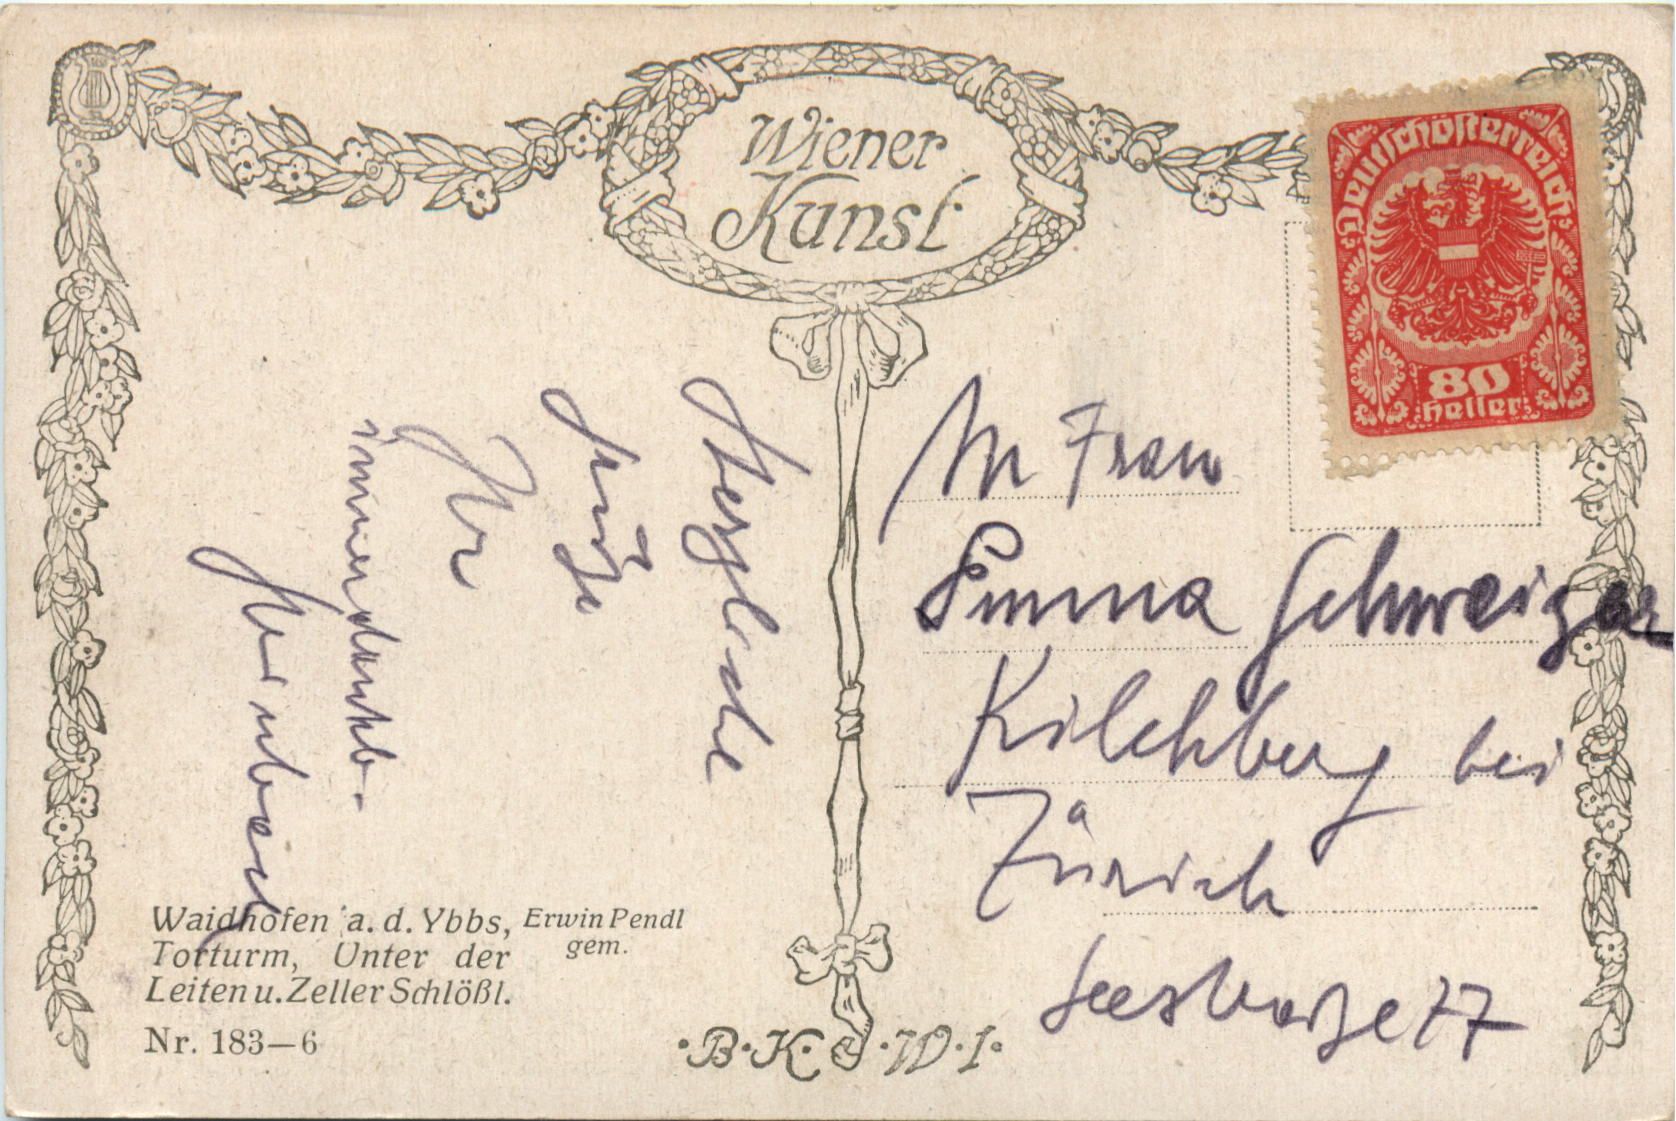 Wiener
Kunst
Deutschösterreich
80
Heller
Herzliche
Grüße
Ihr
immer dankb.
An Frau
Emma Schweizer
Kilchberg bei
Zürich
Seestraße 77
Waidhofen a. d. Ybbs,
Torturm, Unter der
Leiten u. Zeller Schlößl.
Erwin Pendl
gem.
Nr. 183–6
·B·K·W·I·